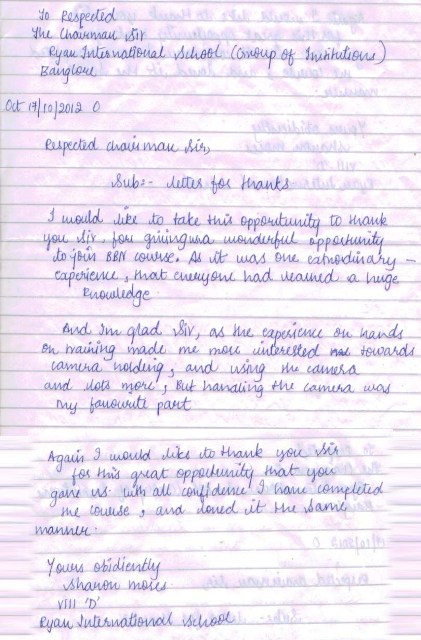 To Respected
The Chairman Sir
Ryan International School (Group of Institutions)
Banglore
Oct 17/10/2012 0
Respected chairman Sir,
Sub:- letter for thanks
I would like to take this opportunity to thank
you Sir, for giving us a wonderful opportunity
to join BBN course. As it was one extrordinary -
experience, that everyone had learned a huge
knowledge.
And Im glad Sir, as the experience on hands
on training made me more interested towards
camera holding, and using the camera
and lots more, But handling the camera was
my favourite part
Again I would like to thank you Sir
for this great opportunity that you
gave us. with all confidence I have completed
the course, and loved it the same
manner.
Yours obidiently
Sharon moses
VIII 'D'
Ryan International School